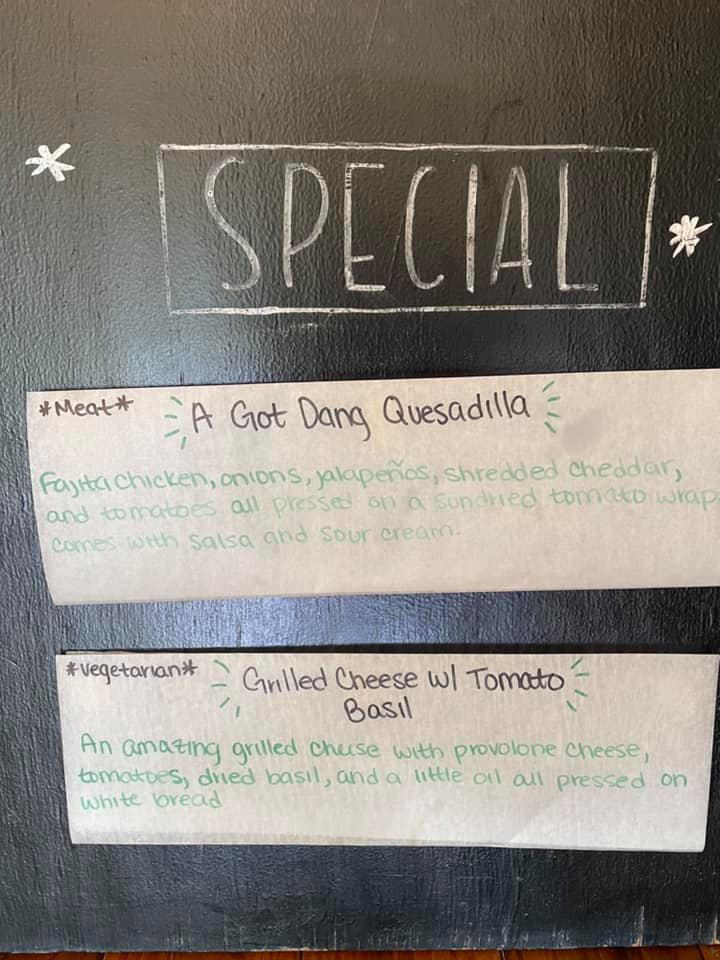 * SPECIAL *
*Meat* A Got Dang Quesadilla
Fajita chicken, onions, jalapeños, shredded cheddar,
and tomatoes all pressed on a sundried tomato wrap
comes with salsa and sour cream.
*Vegetarian* Grilled Cheese w/ Tomato
Basil
An amazing grilled cheese with provolone cheese,
tomatoes, dried basil, and a little oil all pressed on
white bread